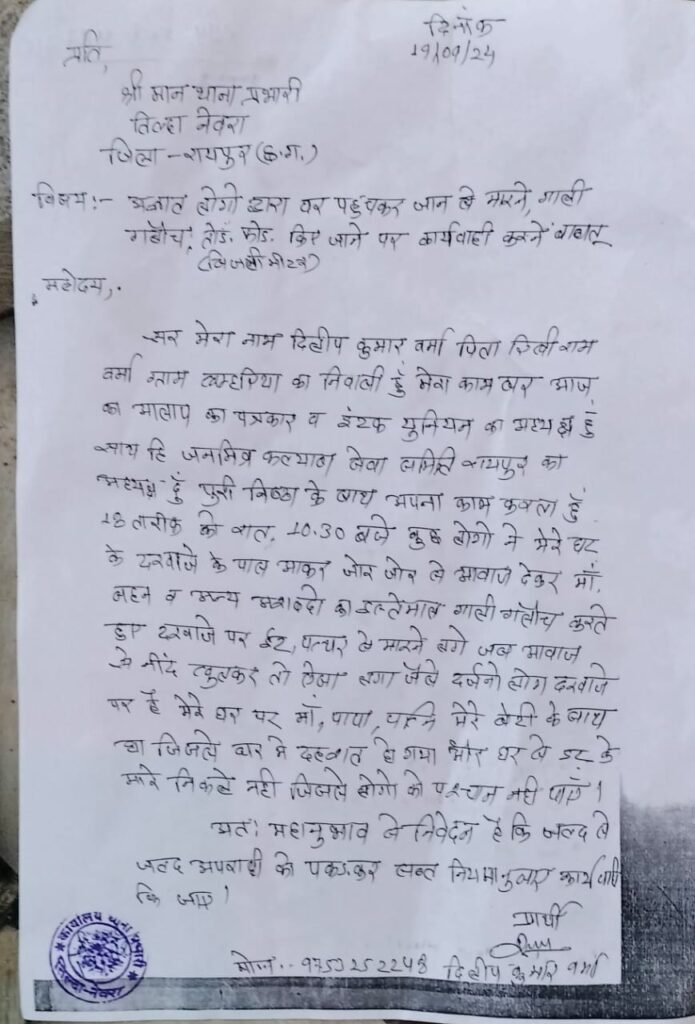 दिनांक
19/09/24
प्रति,
श्री मान थाना प्रभारी
तिल्दा नेवरा
जिला - रायपुर (छ.ग.)
विषय:- अज्ञात लोगो द्वारा घर पहुंचकर जान से मारने, गाली
गलौच, तोड़. फोड. किए जाने पर कार्यवाही करने बाबत्
(बिजली मीटर)
महोदय,
सर मेरा नाम दिलीप कुमार वर्मा पिता राम
वर्मा ग्राम का निवासी हुँ मेरा काम आज
का का पत्रकार व इंटक युनियन का अध्यक्ष हुँ
साथ हि जनमित्र कल्याण सेवा समिति रायपुर का
अध्यक्ष हुँ पुरी निष्ठा के साथ अपना काम करता हुँ
18 तारीक की रात, 10.30 बजे कुछ लोगो ने मेरे घर
के दरवाजे के पास आकर जोर जोर से आवाज देकर माँ,
बहन व अन्य अपशब्दो का इस्तेमाल गाली गलौच करते
हुए दरवाजे पर ईट, पत्थर से मारने लगे जब आवाज
से नींद खुलकर तो ऐसा लगा जैसे दर्जनो लोग दरवाजे
पर है मेरे घर पर माँ, पापा, पत्नि मेरे बेटी के साथ
था जिससे घर मे दहशत हो गया और घर से डर के
मारे निकले नही जिससे लोगो को पहचान नही पाएँ।
अतः महानुभाव से निवेदन है कि जल्द से
जल्द अपराधी को पकडकर सख्त नियमानुसार कार्यवाही
कि जाए।
प्रार्थी
मोबा.- दिलीप कुमार वर्मा
कार्यालय थाना प्रभारी
नेवरा